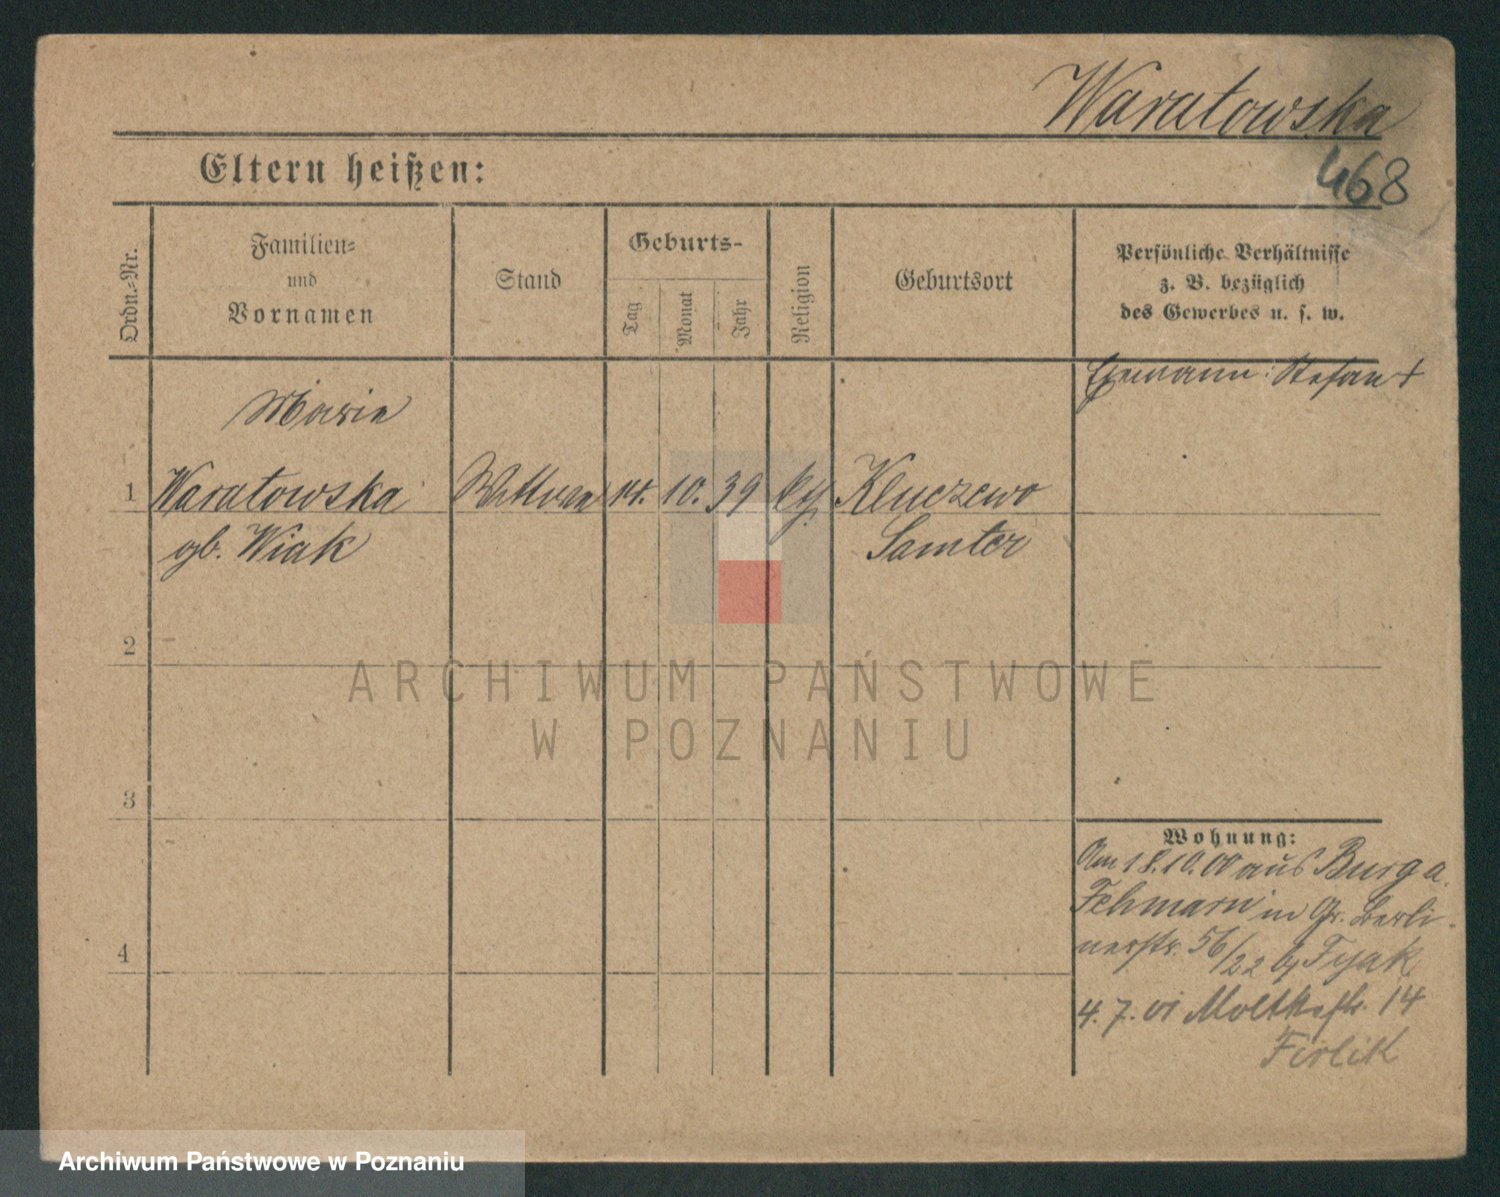 Waratowska
468
Eltern heißen:
Ordn.-Nr.
Familien-
und
Vornamen
Stand
Geburts-
Tag
Monat
Jahr
Religion
Geburtsort
Persönliche Verhältnisse
z. B. bezüglich
des Gewerbes u. s. w.
Ehemann: Stefan †
Marie
1 Waratowska Wittwe 14. 10. 39 Kluczewo
gb. Wiak Samter
2
ARCHIWUM PAŃSTWOWE
W POZNANIU
3
Wohnung:
Am 18.10.00 aus Burg a.
Fehmarn in Gr. Berli-
nerstr. 56/22 by Fyak
4
4. 7. 01 Moltkestr. 14
Firlik
Archiwum Państwowe w Poznaniu